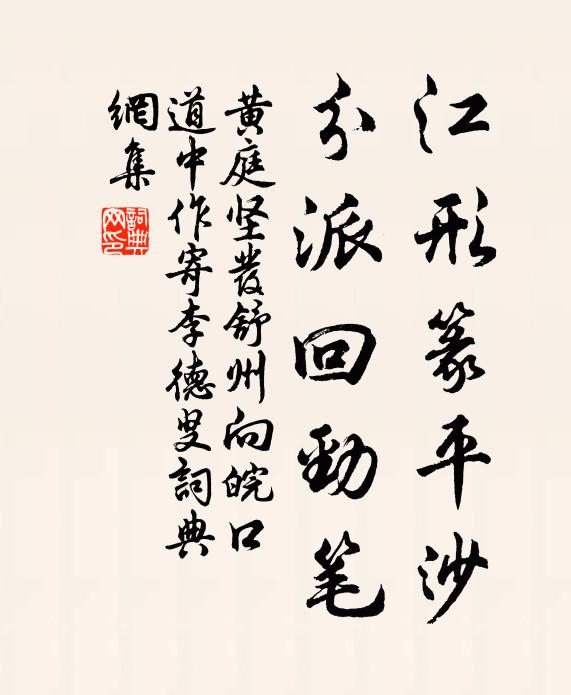 江形篆平沙
分派回勁笔
黄庭坚發舒州向皖口
道中作寄李德叟詞典
網集
詞典网印